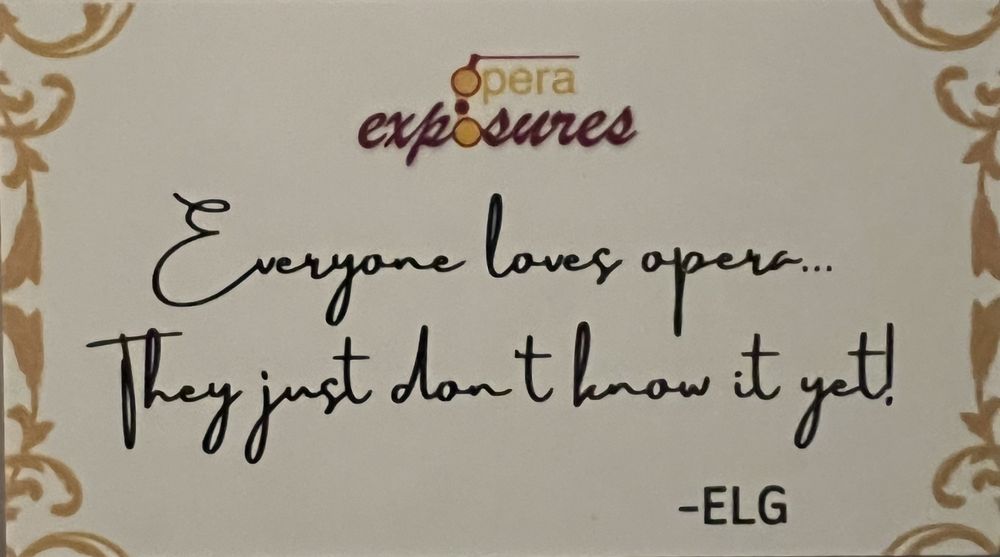 opera
exposures
Everyone loves opera...
They just don't know it yet!
-ELG